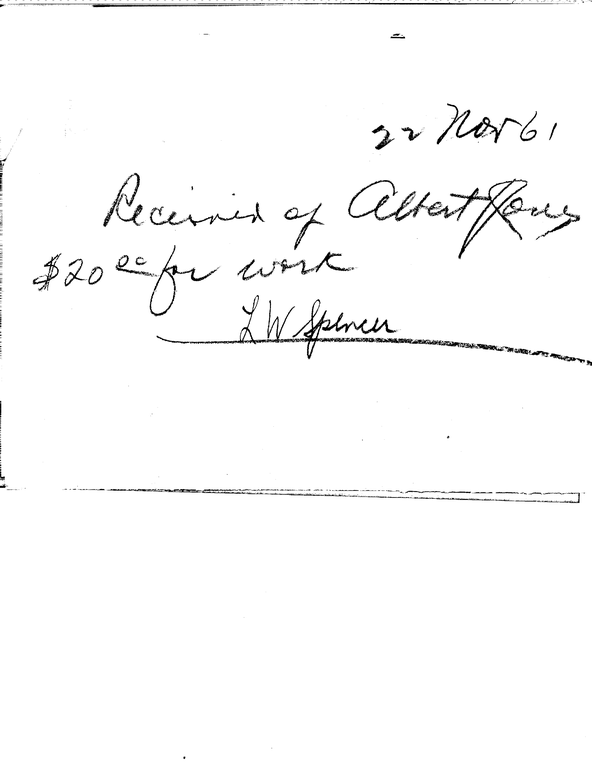 22 Nov 61
Received of Albert
$20 00 for work
L W Spencer